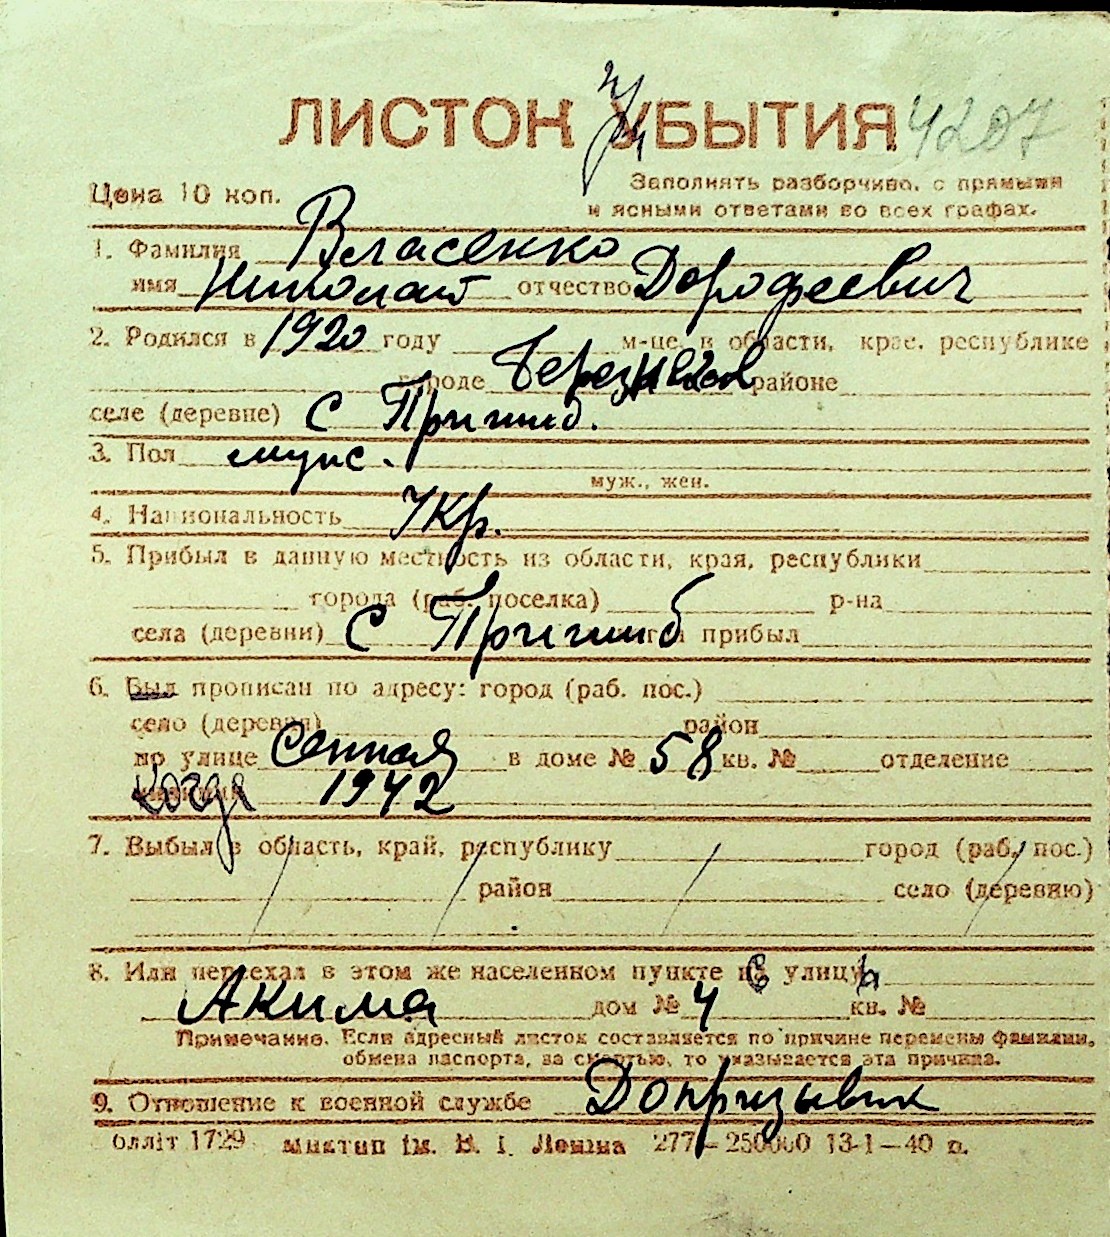 ЛИСТОК УБЫТИЯ 4207
Цена 10 коп. Заполнять разборчиво, с прямыми
и ясными ответами во всех графах.
1. Фамилия Власенко
имя Николай отчество Дорофеевич
2. Родился в 1920 году м-це, в области, крае, республике
городе районе
селе (деревне) с Пришиб.
3. Пол мужс.
муж., жен.
4. Национальность Укр.
5. Прибыл в данную местность из области, края, республики
города (раб. поселка) р-на
села (деревни) с Пришиб прибыл
6. Был прописан по адресу: город (раб. пос.)
село (деревня) район
по улице Сенная в доме № 58 кв. № отделение
Когда 1942
7. Выбыл в область, край, республику город (раб. пос.)
район село (деревню)
8. Или переехал в этом же населенном пункте с улицы
Акима дом № 4 кв. №
Примечание. Если адресный листок составляется по причине перемены фамилии,
обмена паспорта, за смертью, то указывается эта причина.
9. Отношение к военной службе Допризывник
олліт 1729 Миктип ім. В. І. Леніна 277—250000 13-1—40 р.